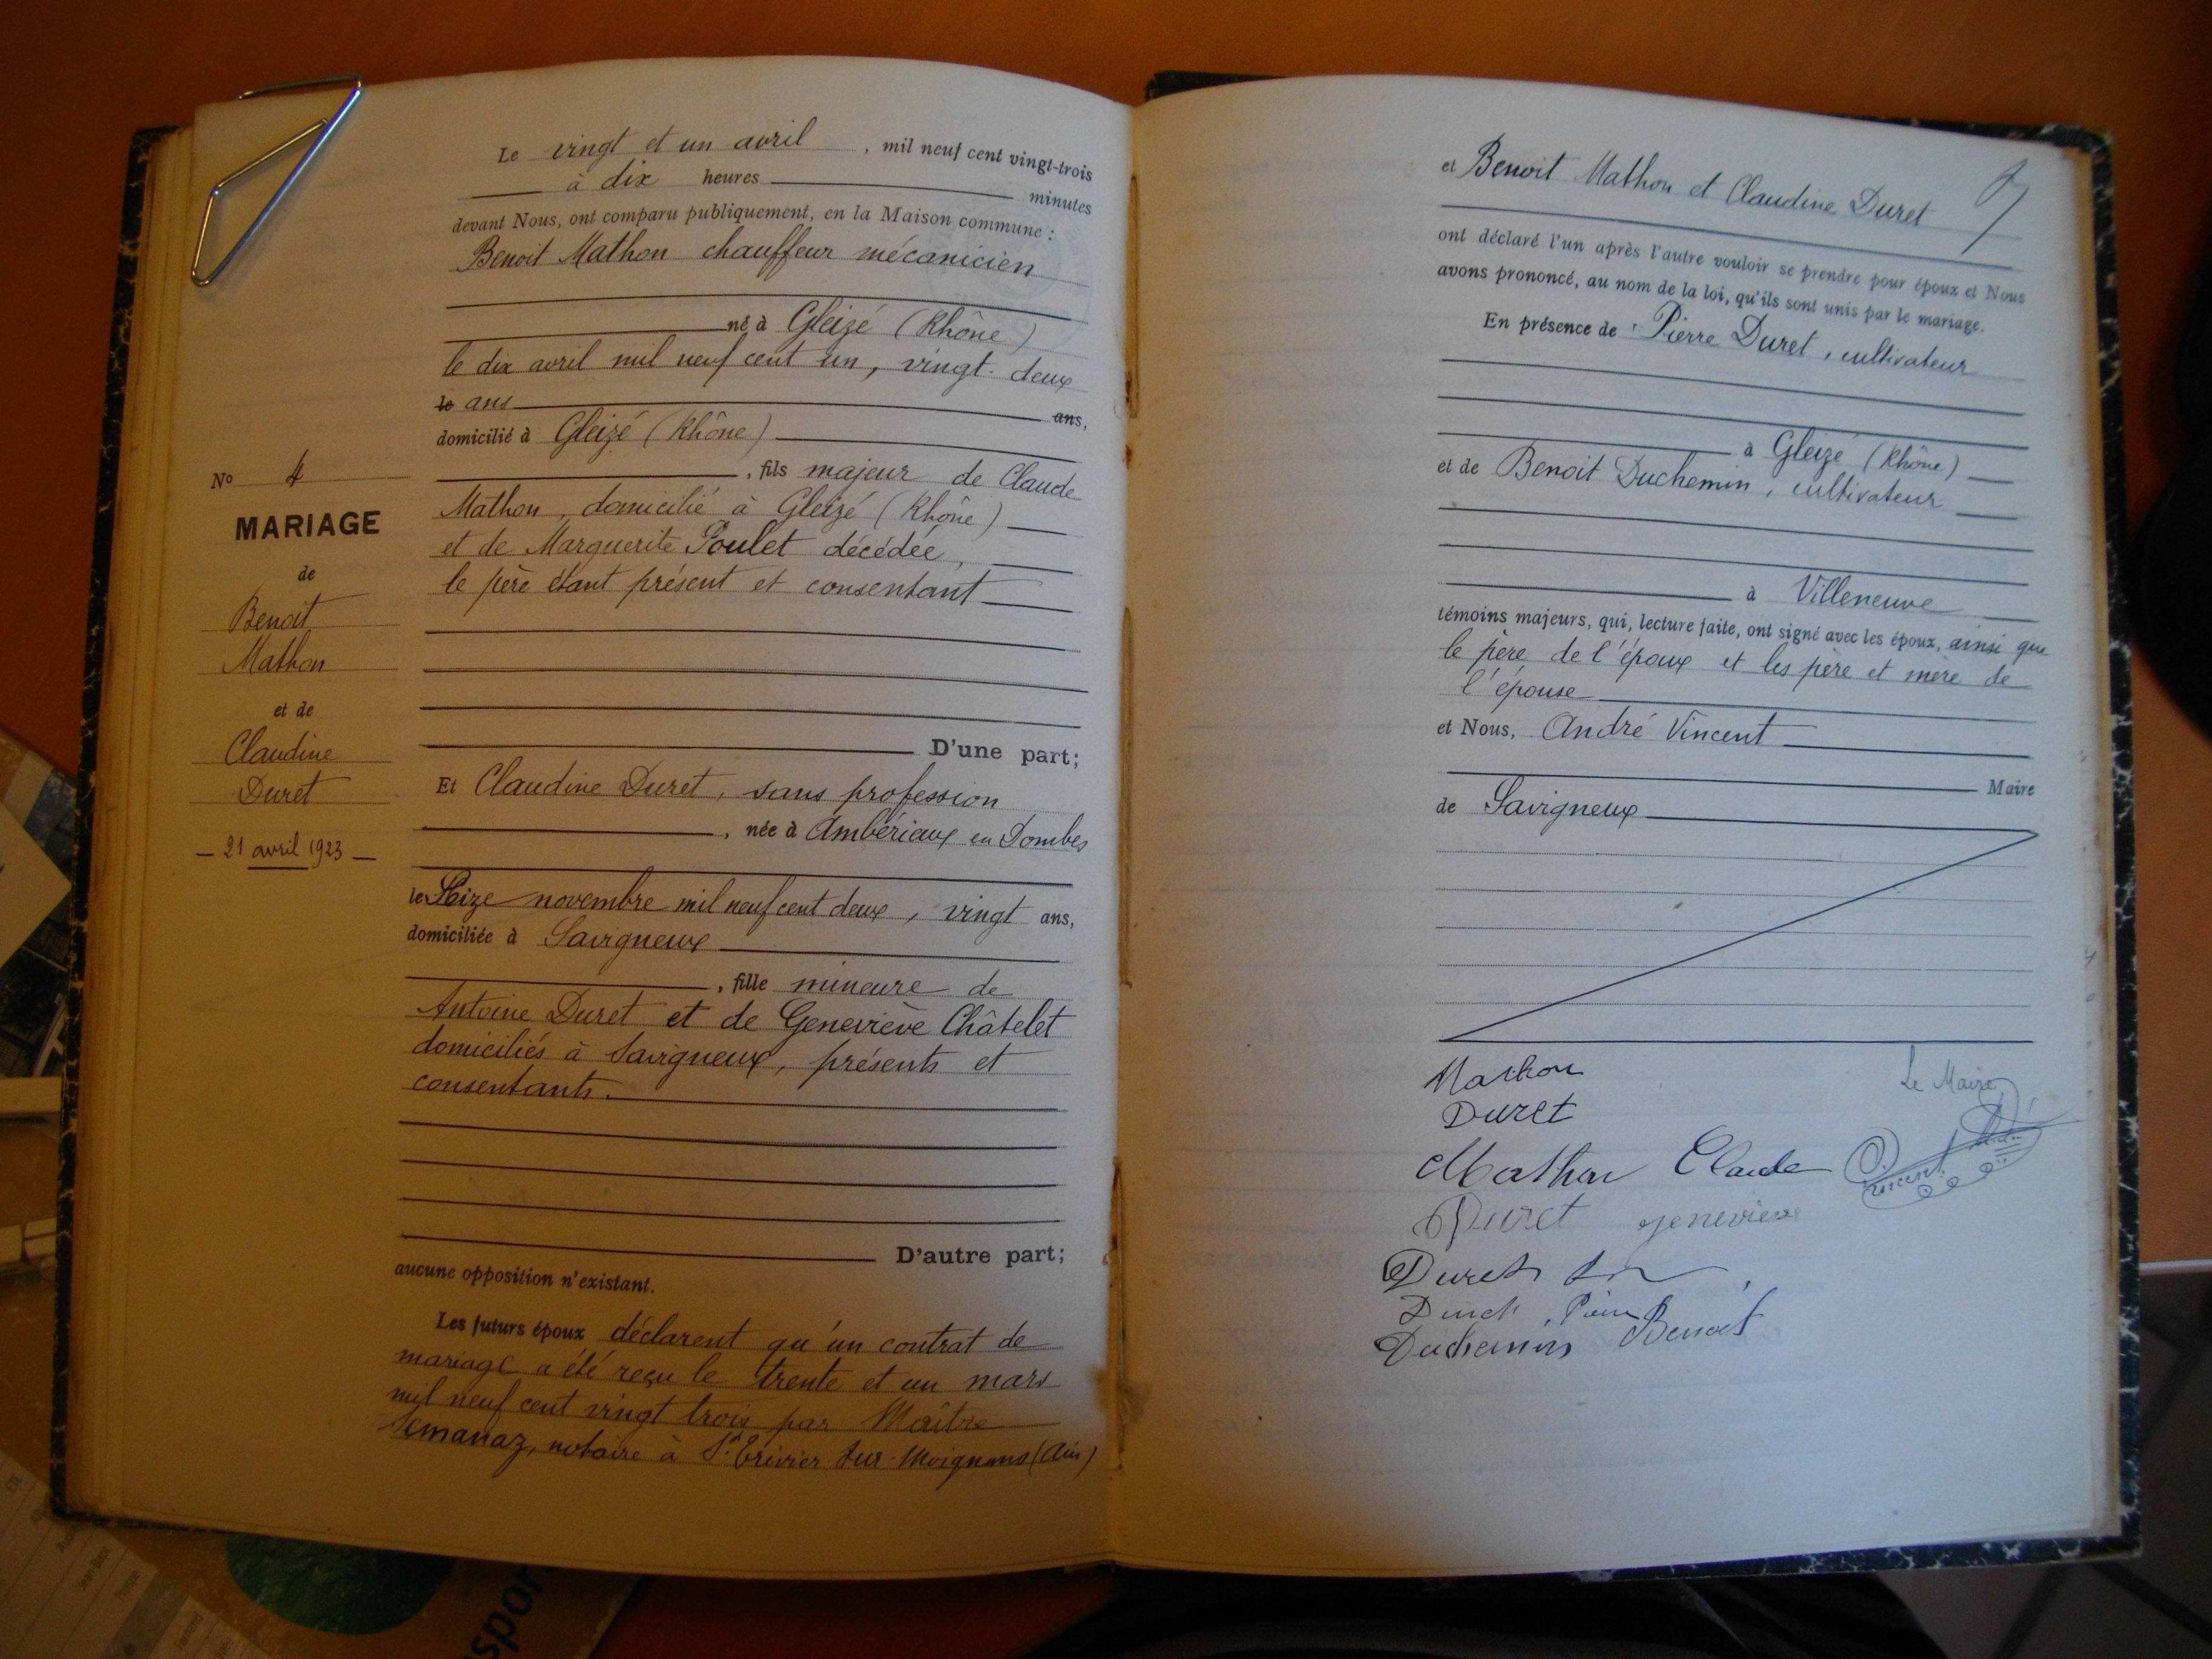 Le vingt et un avril, mil neuf cent vingt-trois
à dix heures minutes
devant Nous, ont comparu publiquement, en la Maison commune :
Benoit Mathon chauffeur mécanicien
né à Gleizé (Rhône)
le dix avril mil neuf cent un, vingt-deux
le ans ans,
domicilié à Gleizé (Rhône)
, fils majeur de Claude
Mathon, domicilié à Gleizé (Rhône)
et de Marguerite Poulet décédée,
le père étant présent et consentant
D'une part;
Et Claudine Duret, sans profession
, née à Ambérieux en Dombes
le Seize novembre mil neuf cent deux, vingt ans,
domiciliée à Savigneux
, fille mineure de
Antoine Duret et de Geneviève Châtelet
domiciliés à Savigneux, présents et
consentants.
D'autre part;
aucune opposition n'existant.
Les futurs époux déclarent qu'un contrat de
mariage a été reçu le trente et un mars
mil neuf cent vingt trois par Maître
notaire à St Trivier sur Moignans (Ain)
No 4
MARIAGE
de
Benoit
Mathon
et de
Claudine
Duret
21 avril 1923
et Benoit Mathon et Claudine Duret
ont déclaré l'un après l'autre vouloir se prendre pour époux et Nous
avons prononcé, au nom de la loi, qu'ils sont unis par le mariage.
En présence de Pierre Duret, cultivateur
à Gleizé (Rhône)
et de Benoit Duchemin, cultivateur
à Villeneuve
témoins majeurs, qui, lecture faite, ont signé avec les époux, ainsi que
le père de l'époux et les père et mère de
l'épouse
et Nous, André Vincent
Maire
de Savigneux
Mathon
Le Maire
Duret
Mathon Claude
Vincent
Duret genevieve
Duret
Duret Pierre
Duchemin Benoit